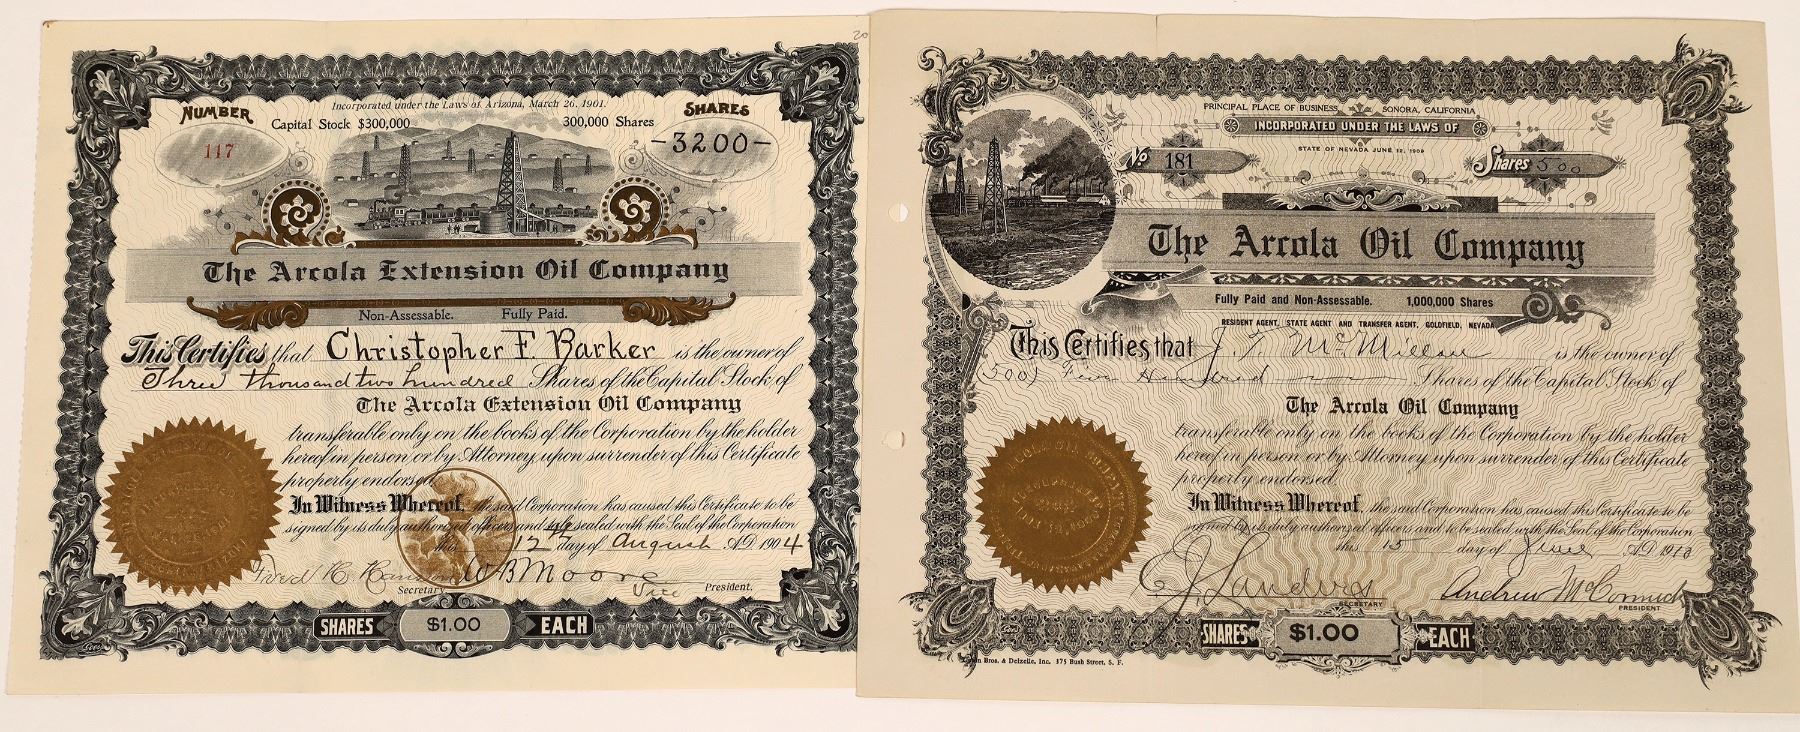 20
NUMBER
117
Incorporated under the Laws of Arizona, March 26, 1901.
Capital Stock $300,000 300,000 Shares
SHARES
-3200-
The Arcola Extension Oil Company
Non-Assessable. Fully Paid.
This Certifies that Christopher F. Barker is the owner of
Three thousand two hundred Shares of the Capital Stock of
The Arcola Extension Oil Company
transferable only on the books of the Corporation by the holder
hereof in person or by Attorney, upon surrender of this Certificate
properly endorsed.
In Witness Whereof, the said Corporation has caused this Certificate to be
signed by its duly authorized officers and to be sealed with the Seal of the Corporation
this 12th day of August A.D. 1904
Fred H. W B Moore
Secretary Vice President.
SHARES $1.00 EACH
PRINCIPAL PLACE OF BUSINESS SONORA, CALIFORNIA
INCORPORATED UNDER THE LAWS OF
STATE OF NEVADA JUNE 12, 1909
No 181
Shares 500
The Arcola Oil Company
Fully Paid and Non-Assessable. 1,000,000 Shares
RESIDENT AGENT, STATE AGENT AND TRANSFER AGENT, GOLDFIELD, NEVADA
This Certifies that J. T. McMillan is the owner of
(500) Five Hundred Shares of the Capital Stock of
The Arcola Oil Company
transferable only on the books of the Corporation by the holder
hereof in person or by Attorney, upon surrender of this Certificate
properly endorsed.
In Witness Whereof, the said Corporation has caused this Certificate to be
signed by its duly authorized officers and to be sealed with the Seal of the Corporation
this 15 day of June A.D. 1910
C J. Sanders Andrew McCormick
SECRETARY PRESIDENT
SHARES $1.00 EACH
Bros. & Delzelle, Inc. 375 Bush Street, S. F.